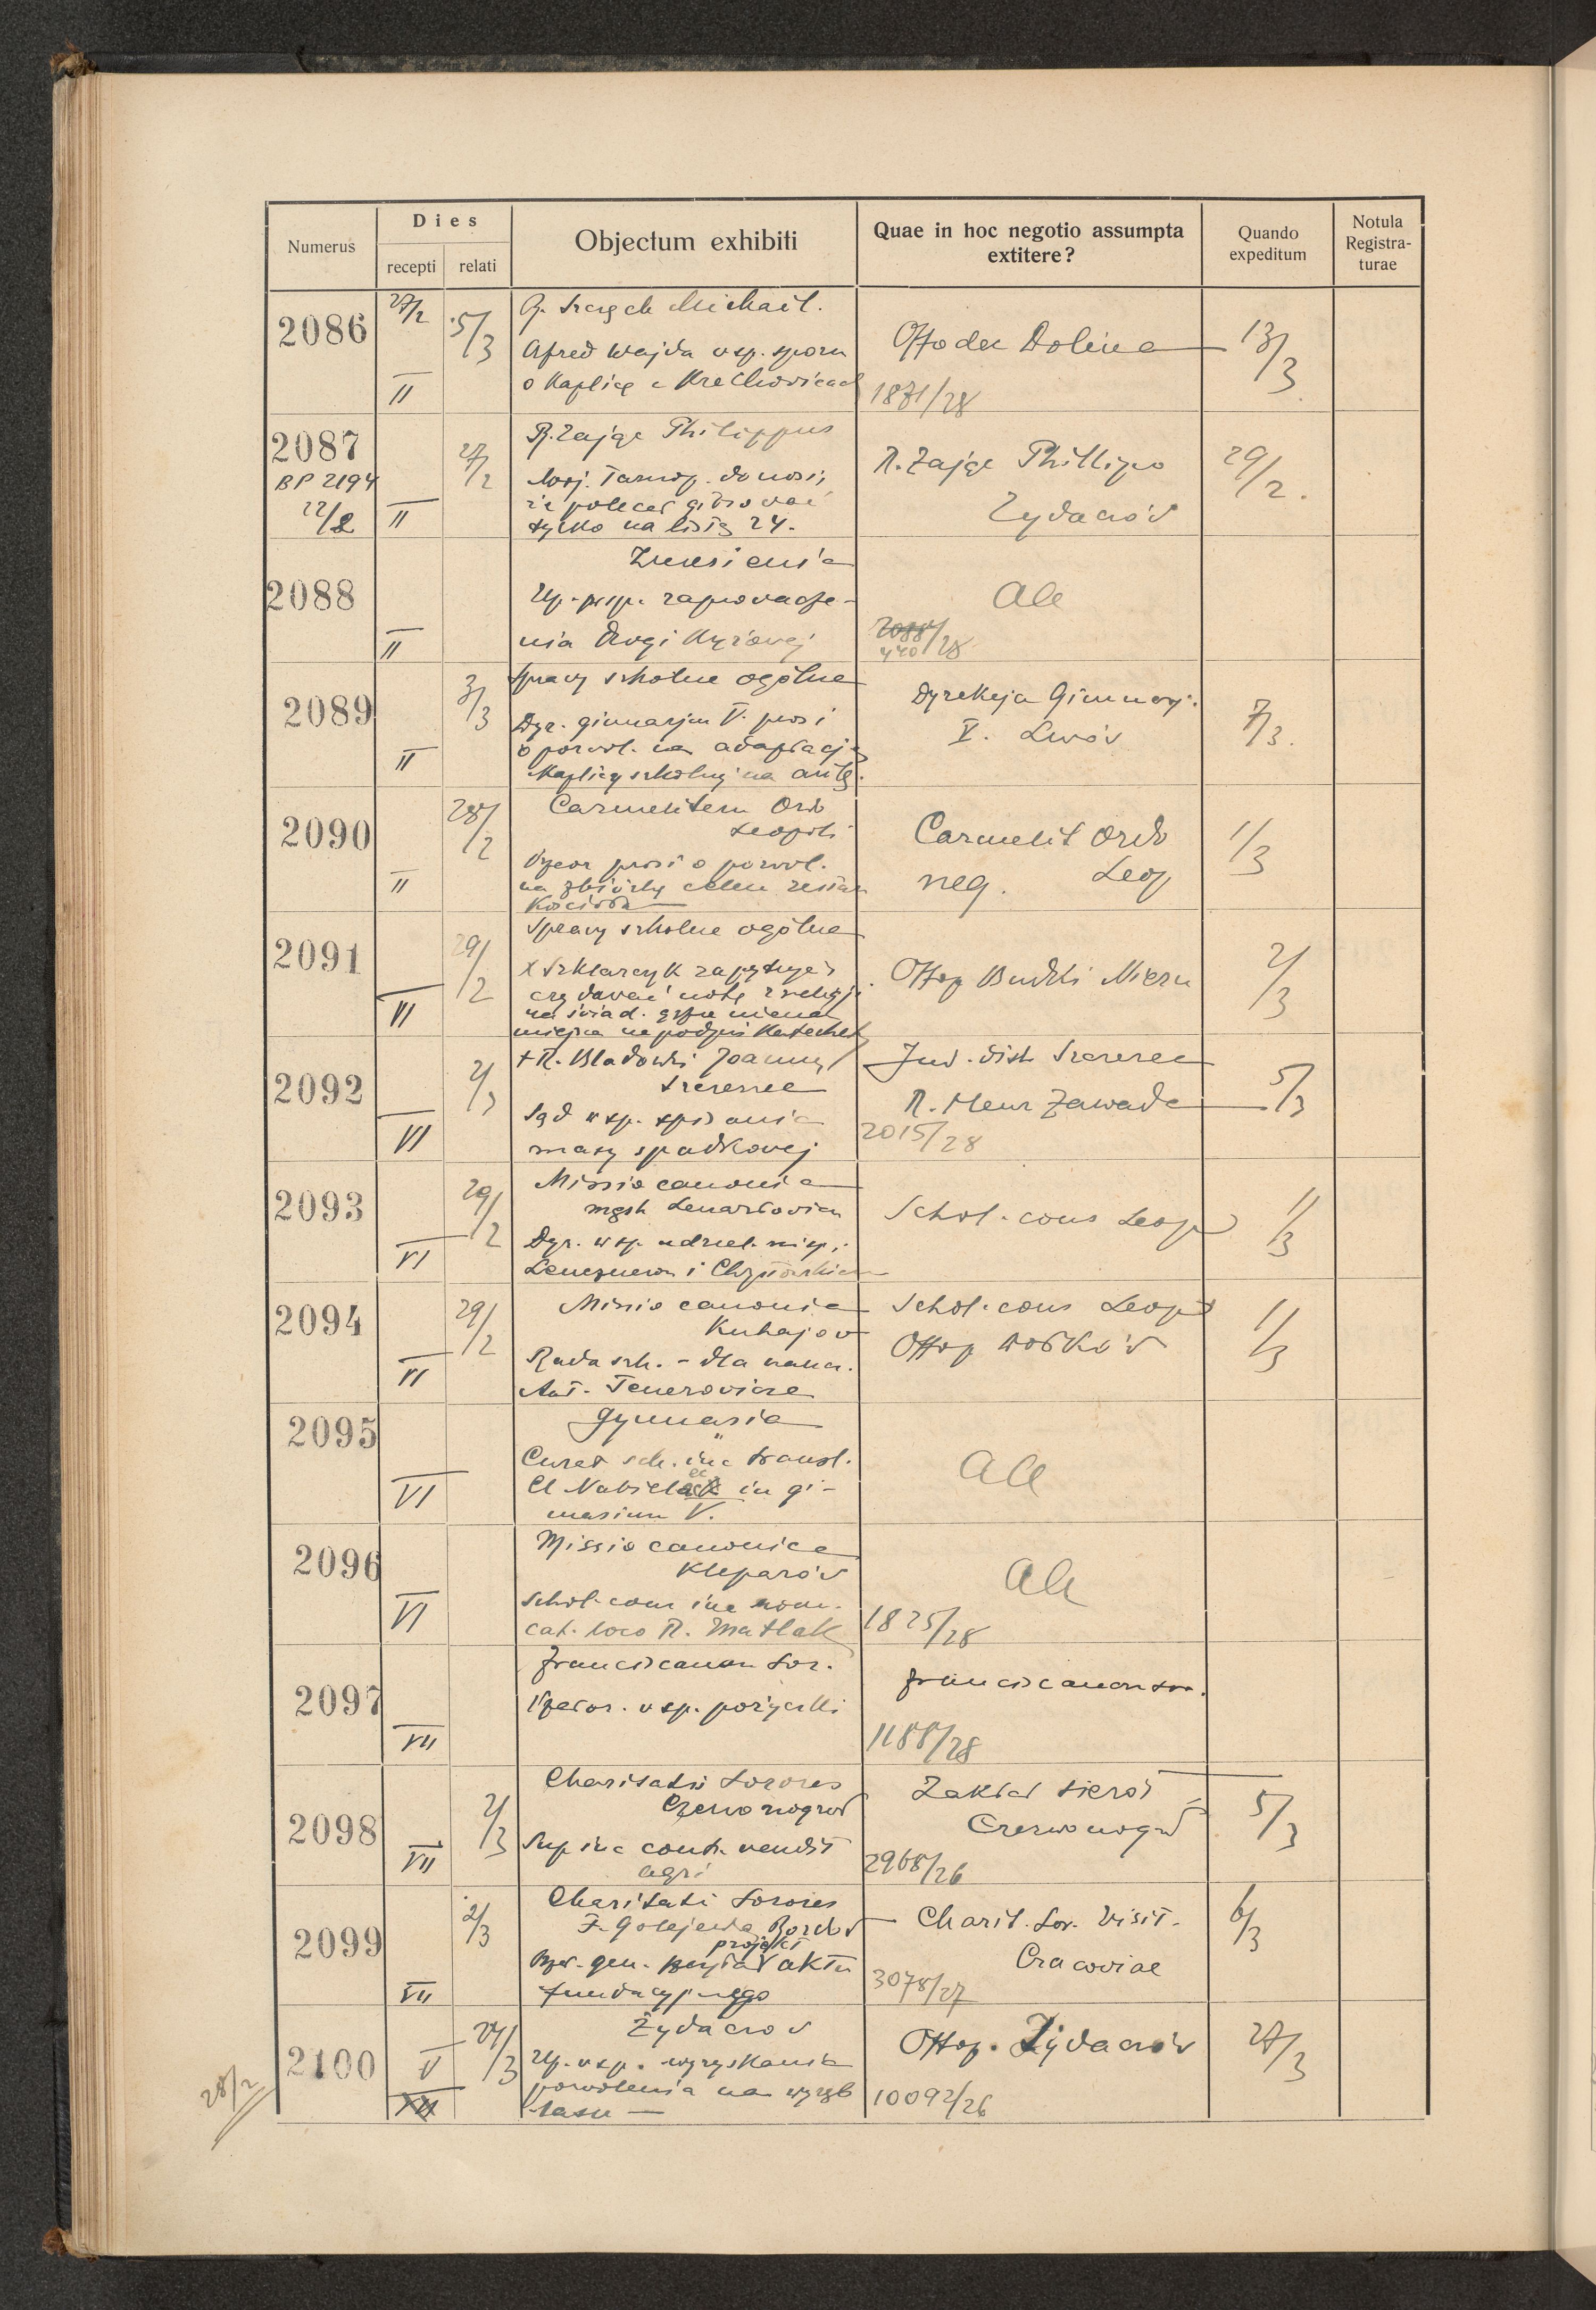 Numerus
Dies
recepti
relati
Objectum exhibiti
Quae in hoc negotio assumpta
extitere?
Quando
expeditum
Notula
Registra-
turae
2086
27/2
II
5/3
Michael.
Alfred Wajda wsp. sporu
o Kaplicę w Krechowicach
Offo dec Dolina
1871/28
13/3
2087
BP 2194
22/2
II
27/2
R. Zając Philippus
Woj. Tarnop. donosi,
że polecał głosować
tylko na listę 24.
R. Zając Phillipo
Żydaczów
29/2.
2088
II
Zniesienia
Up. zaprowadze-
nia Drogi Krzyżowej
Ale
2088/28
440
2089
II
3/3
Sprawy szkolne ogólne
Dyr. gimnazjum V. prosi
o pozwol. na adaptację
Kaplicy szkolnej na aulę.
Dyrekcja Gimnazj.
V. Lwów
7/3.
2090
II
28/2
Carmelitem Ord
Leopoli
Przeor prosi o pozwol.
na zbiórkę celem restaur
Kościoła
Carmelit Ord
neg. Leop
1/3
2091
VI
29/2
Sprawy szkolne ogólne
X Szklarczyk zapytuje
czy dawać notę z religji
na świad. gdzie niema
miejsca na podpis Katechety
Offop Budki Niezn
2/3
2092
VI
2/3
+ R. Bladowski Joannes
Szczerzec
Sąd wsp. spisania
masy spadkowej
Jud. dist Szczerzec
R. Henr Zawada
2015/28
5/3
2093
VI
29/2
Missio canonica
mgsh Lenartowicz
Dyr. wsp. udziel. misji
Schol. cons Leop
1/3
2094
VI
29/2
Missio canonica
Kuhajow
Rada szk. - dla naucz.
Ant. Tenerowicza
Schol. cons Leopol
Offop Wołków
1/3
2095
VI
Gymnasia
Curat sch. in c transl.
Cl Nabielak in gi-
mnasium V.
Ale
2096
VI
Missio canonica
Kleparów
Schol. cons in c nom.
cat. loco R. Matlak
Ale
1825/28
2097
VII
Franciscanon Sor.
Przełoż. wsp. pożyczki
Franciscanon Sor.
1188/28
2098
VII
2/3
Charitatis Sorores
Czerwonogród
Sup in c contr. vendit
agri
Zakład sierot
Czerwonogród
2968/26
5/3
2099
VII
2/3
Charitati Sorores
F. Golejewska Borchów
projekt
gen. aktu
fundacyjnego
Charit. Sor. Visit.
Cracoviae
3078/27
6/3
2100
V
VII
24/3
Żydaczów
Up. wsp. uzyskania
pozwolenia na wyręb
lasu
Offop. Żydaczów
10092/26
27/3
28/2